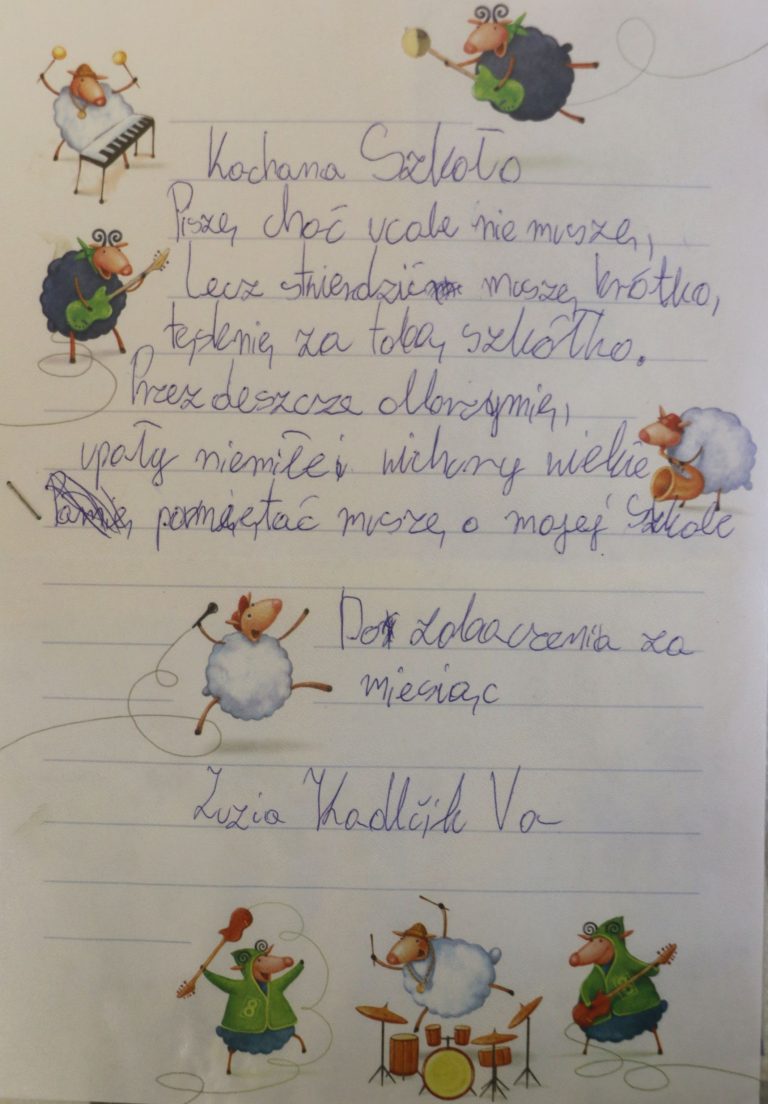 Kochana Szkoło
Piszę choć wcale nie muszę,
Lecz stwierdzić muszę krótko,
tęsknię za tobą szkółko.
Przez deszcze olbrzymie,
upały niemiłe i wichury wielkie
pamiętać muszę o mojej Szkole
Do zobaczenia za
miesiąc
Zuzia Kadlčik Va